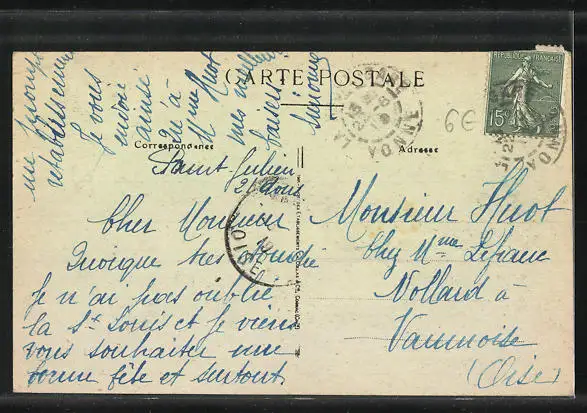 CARTE POSTALE
Correspondance
Adresse
REPUBLIQUE FRANÇAISE
15c
6€
Saint Julien
26 Août
Cher Monsieur
Quoique très
Je n'ai pas oublié
la St Louis et je viens
vous souhaiter une
bonne fête et surtout
une prompt
rétablissement
Je vous
envoie
ainsi
qu'à
Mme Huot
mes meilleurs
baisers
Monsieur Huot
Chez Mme Lefranc
Nollard à
Vaumoise
(Oise)
YONNE